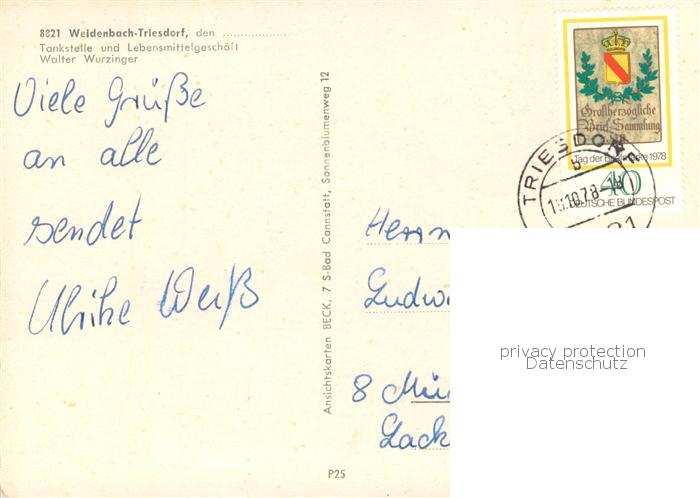 8821 Weidenbach-Triesdorf, den ....................
Tankstelle und Lebensmittelgeschäft
Walter Wurzinger
Viele Grüße
an alle
sendet
Ulrike Weiß
Ansichtskarten BECK, 7 S-Bad Cannstatt, Sonnenblumenweg 12
P25
Großherzogliche
Brief-Sammlung
Tag der Briefmarke 1978
40
DEUTSCHE BUNDESPOST
TRIESDORF
b
10.78
Herrn
Ludwi
8 Mün
Lack
privacy protection
Datenschutz